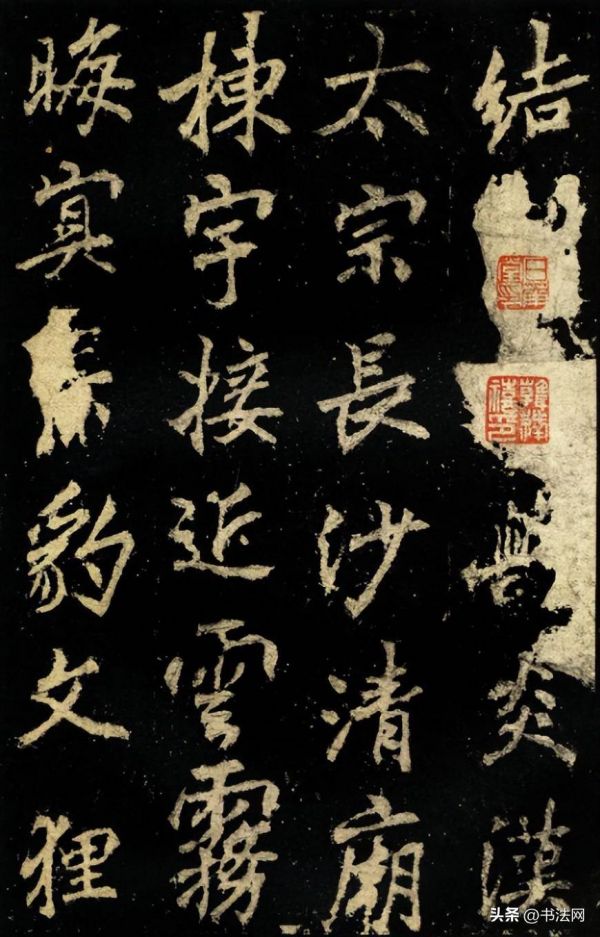 結炎漢
太宗長沙清廟
棟宇接近雲霧
晦冥豹文狸
头条 @书法网